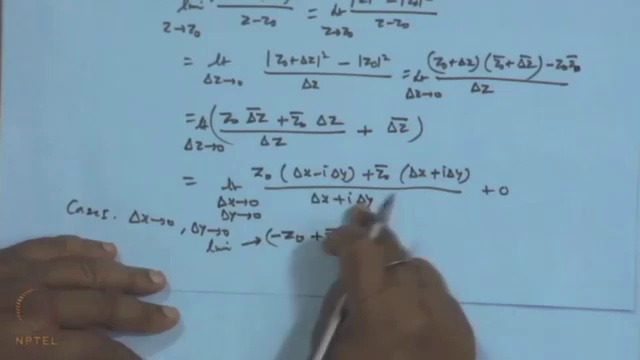 lim
z→z₀ z-z₀ = lt z→z₀ z-z₀
= lt Δz→0 |z₀+Δz|² - |z₀|² / Δz = lt Δz→0 (z₀+Δz)(z̄₀+Δ̄z̄)-z₀z̄₀ / Δz
= lt Δz→0 ( z₀ Δ̄z̄ + z̄₀ Δz / Δz + Δ̄z̄ )
= lt Δx→0 Δy→0 z₀(Δx-iΔy)+z̄₀(Δx+iΔy) / Δx+iΔy + 0
Case I. Δx→0, Δy→0
lim → (-z₀ +
NPTEL